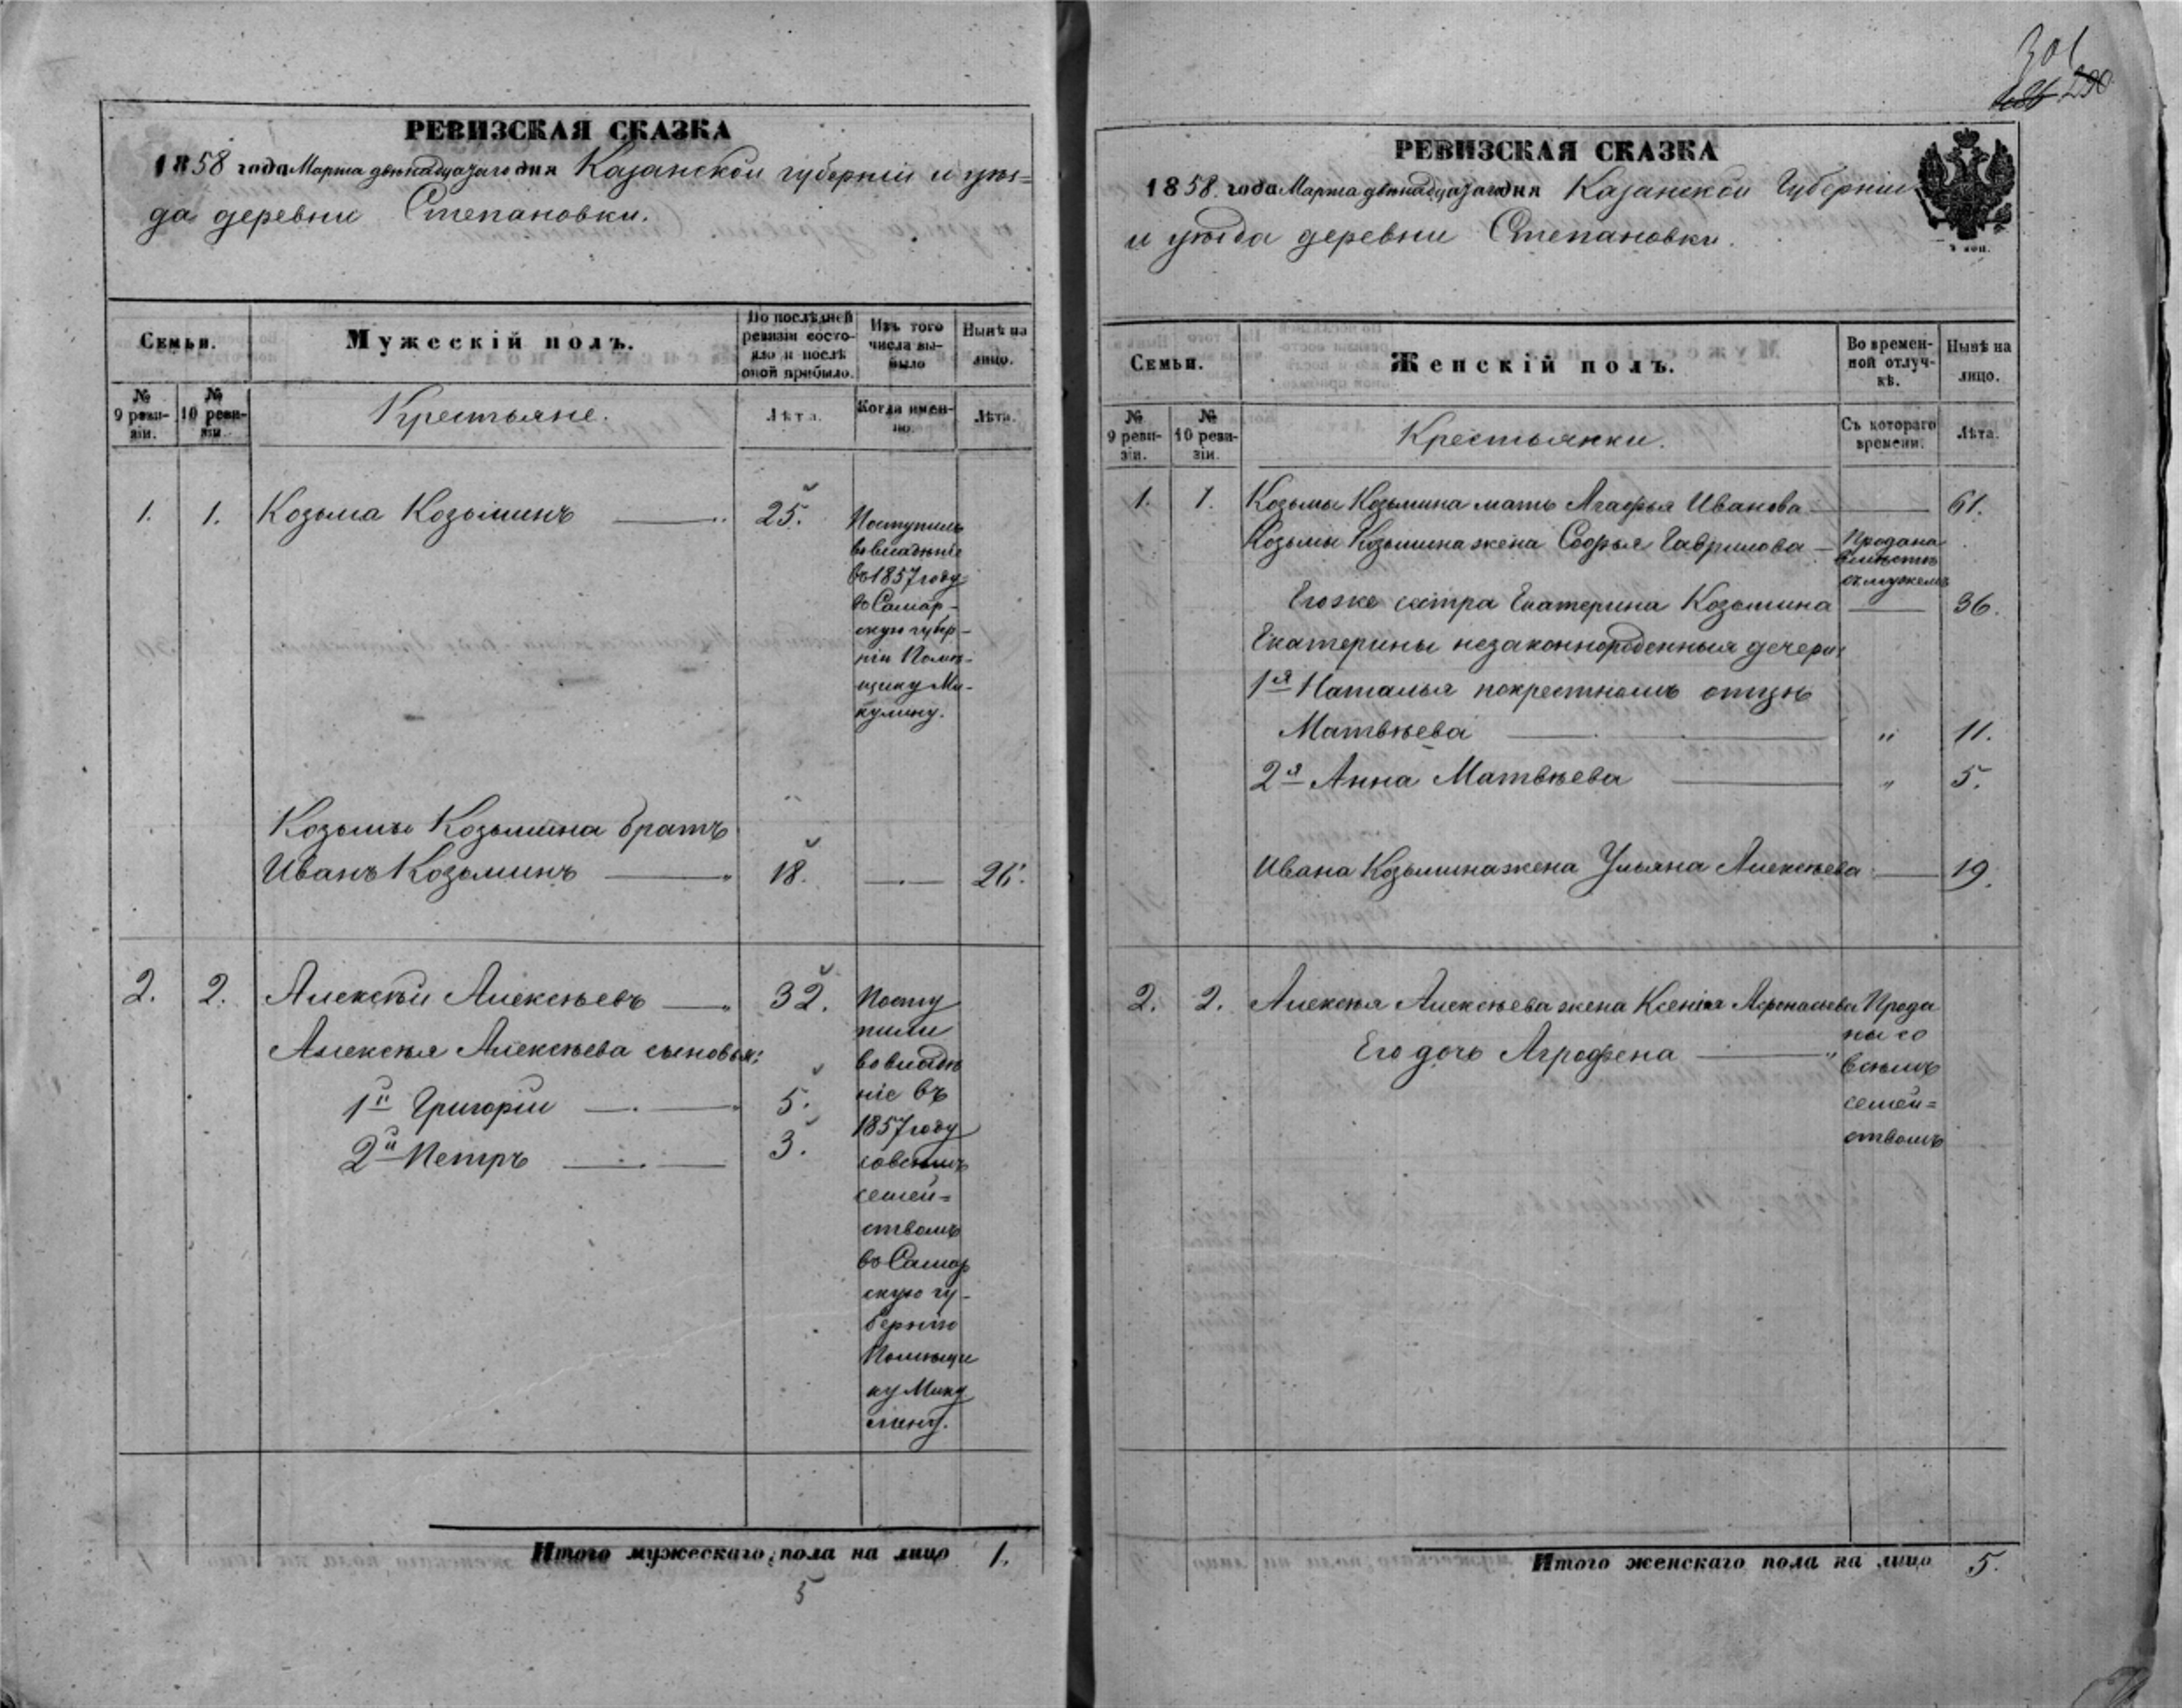 РЕВИЗСКАЯ СКАЗКА
1858 года Марта двѣнадцатаго дня Казанской губерніи и уѣз=
да деревни Степановки.
Семьи.
Мужескій полъ.
По послѣдней
ревизіи состо-
яло и послѣ
оной прибыло.
Изъ того
числа вы-
было
Нынѣ на
лицо.
№
9 реви-
зіи.
№
10 реви-
зіи.
Крестьяне.
Лѣта.
Когда имен-
но.
Лѣта.
1. 1. Козьма Козьминъ 25.
Поступилъ
во владѣніе
въ 1857 году
въ Самар-
скую губер-
нію Помѣ-
щику Ми-
кулину.
Козьмы Козьмина братъ
Иванъ Козьминъ 18. 26.
2. 2. Алексѣй Алексѣевъ 32.
Алексѣя Алексѣева сыновья:
1й Григорій 5.
2й Петръ 3.
Посту
пили
во владѣ
ніе въ
1857 году
со всѣмъ
семей=
ствомъ
въ Самар
скую гу-
бернію
Помѣщи
ку Мику
лину.
Итого мужескаго пола на лицо 1.
5
301
290
РЕВИЗСКАЯ СКАЗКА
1858. года Марта двѣнадцатаго дня Казанской Губерніи
и уѣзда деревни Степановки.
Семьи.
Женскій полъ.
Во времен-
ной отлуч-
кѣ.
Нынѣ на
лицо.
№
9 реви-
зіи.
№
10 реви-
зіи.
Крестьянки.
Съ котораго
времени.
Лѣта.
1. 1. Козьмы Козьмина мать Агафья Иванова 61.
Козьмы Козьмина жена Софья Гаврилова
Продана
вмѣстѣ
съ мужемъ
Его же сестра Екатерина Козьмина 36.
Екатерины незаконнорожденныя дочери:
1я Наталья по крестномъ отцѣ
Матвѣева " 11.
2я Анна Матвѣева " 5.
Ивана Козьмина жена Ульяна Алексѣева 19.
2. 2. Алексѣя Алексѣева жена Ксенія Афонасьева
Его дочь Агрофена "
Прода
ны со
всѣмъ
семей=
ствомъ
Итого женскаго пола на лицо 5.